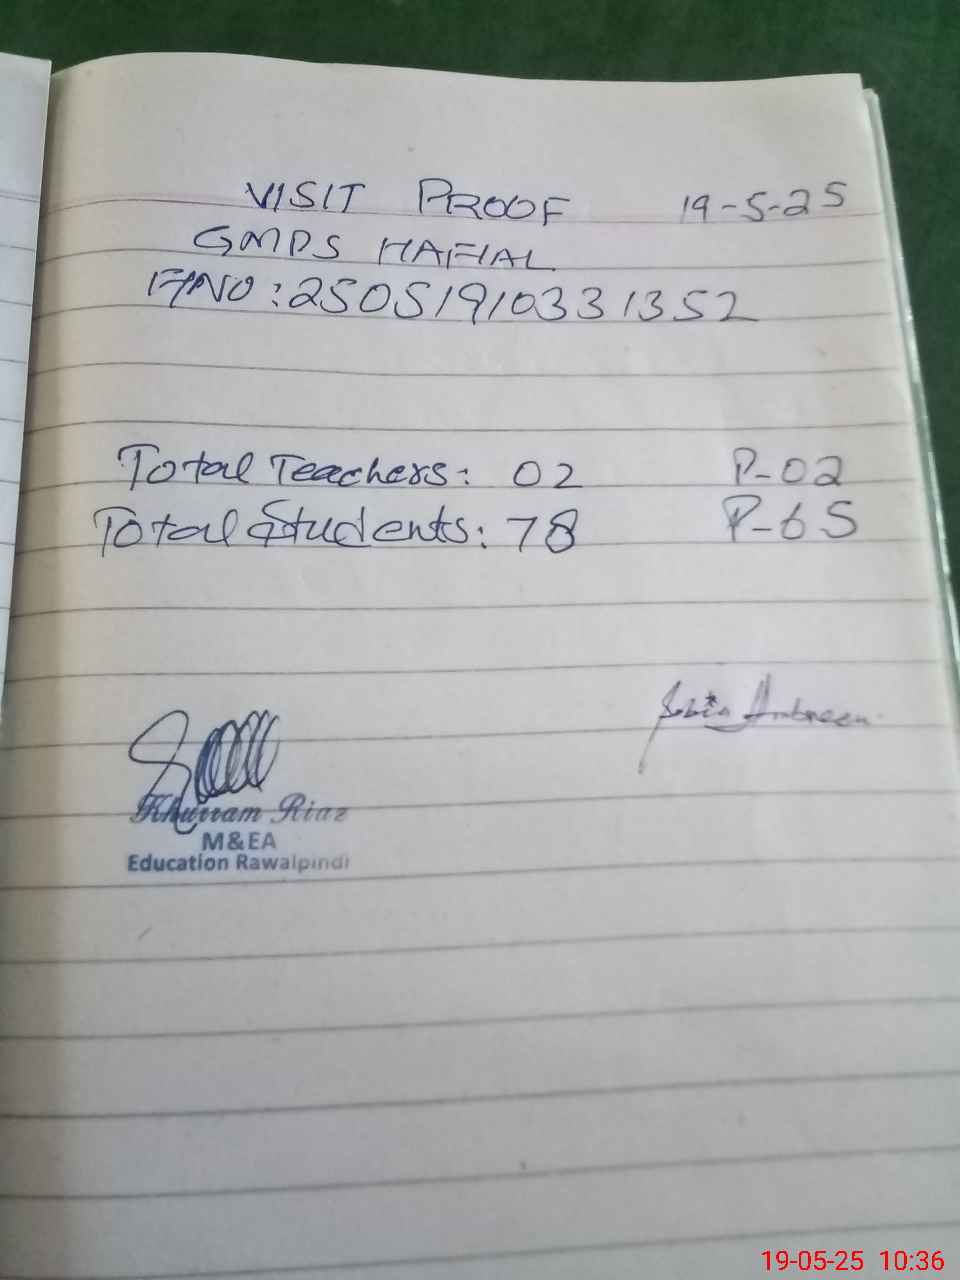 VISIT PROOF 19-5-25
GMPS HAFIAL
F/NO: 25051910331352
Total Teachers: 02 P-02
Total Students: 78 P-65
Sobia Ambreen
Khurram Riaz
M&EA
Education Rawalpindi
19-05-25 10:36